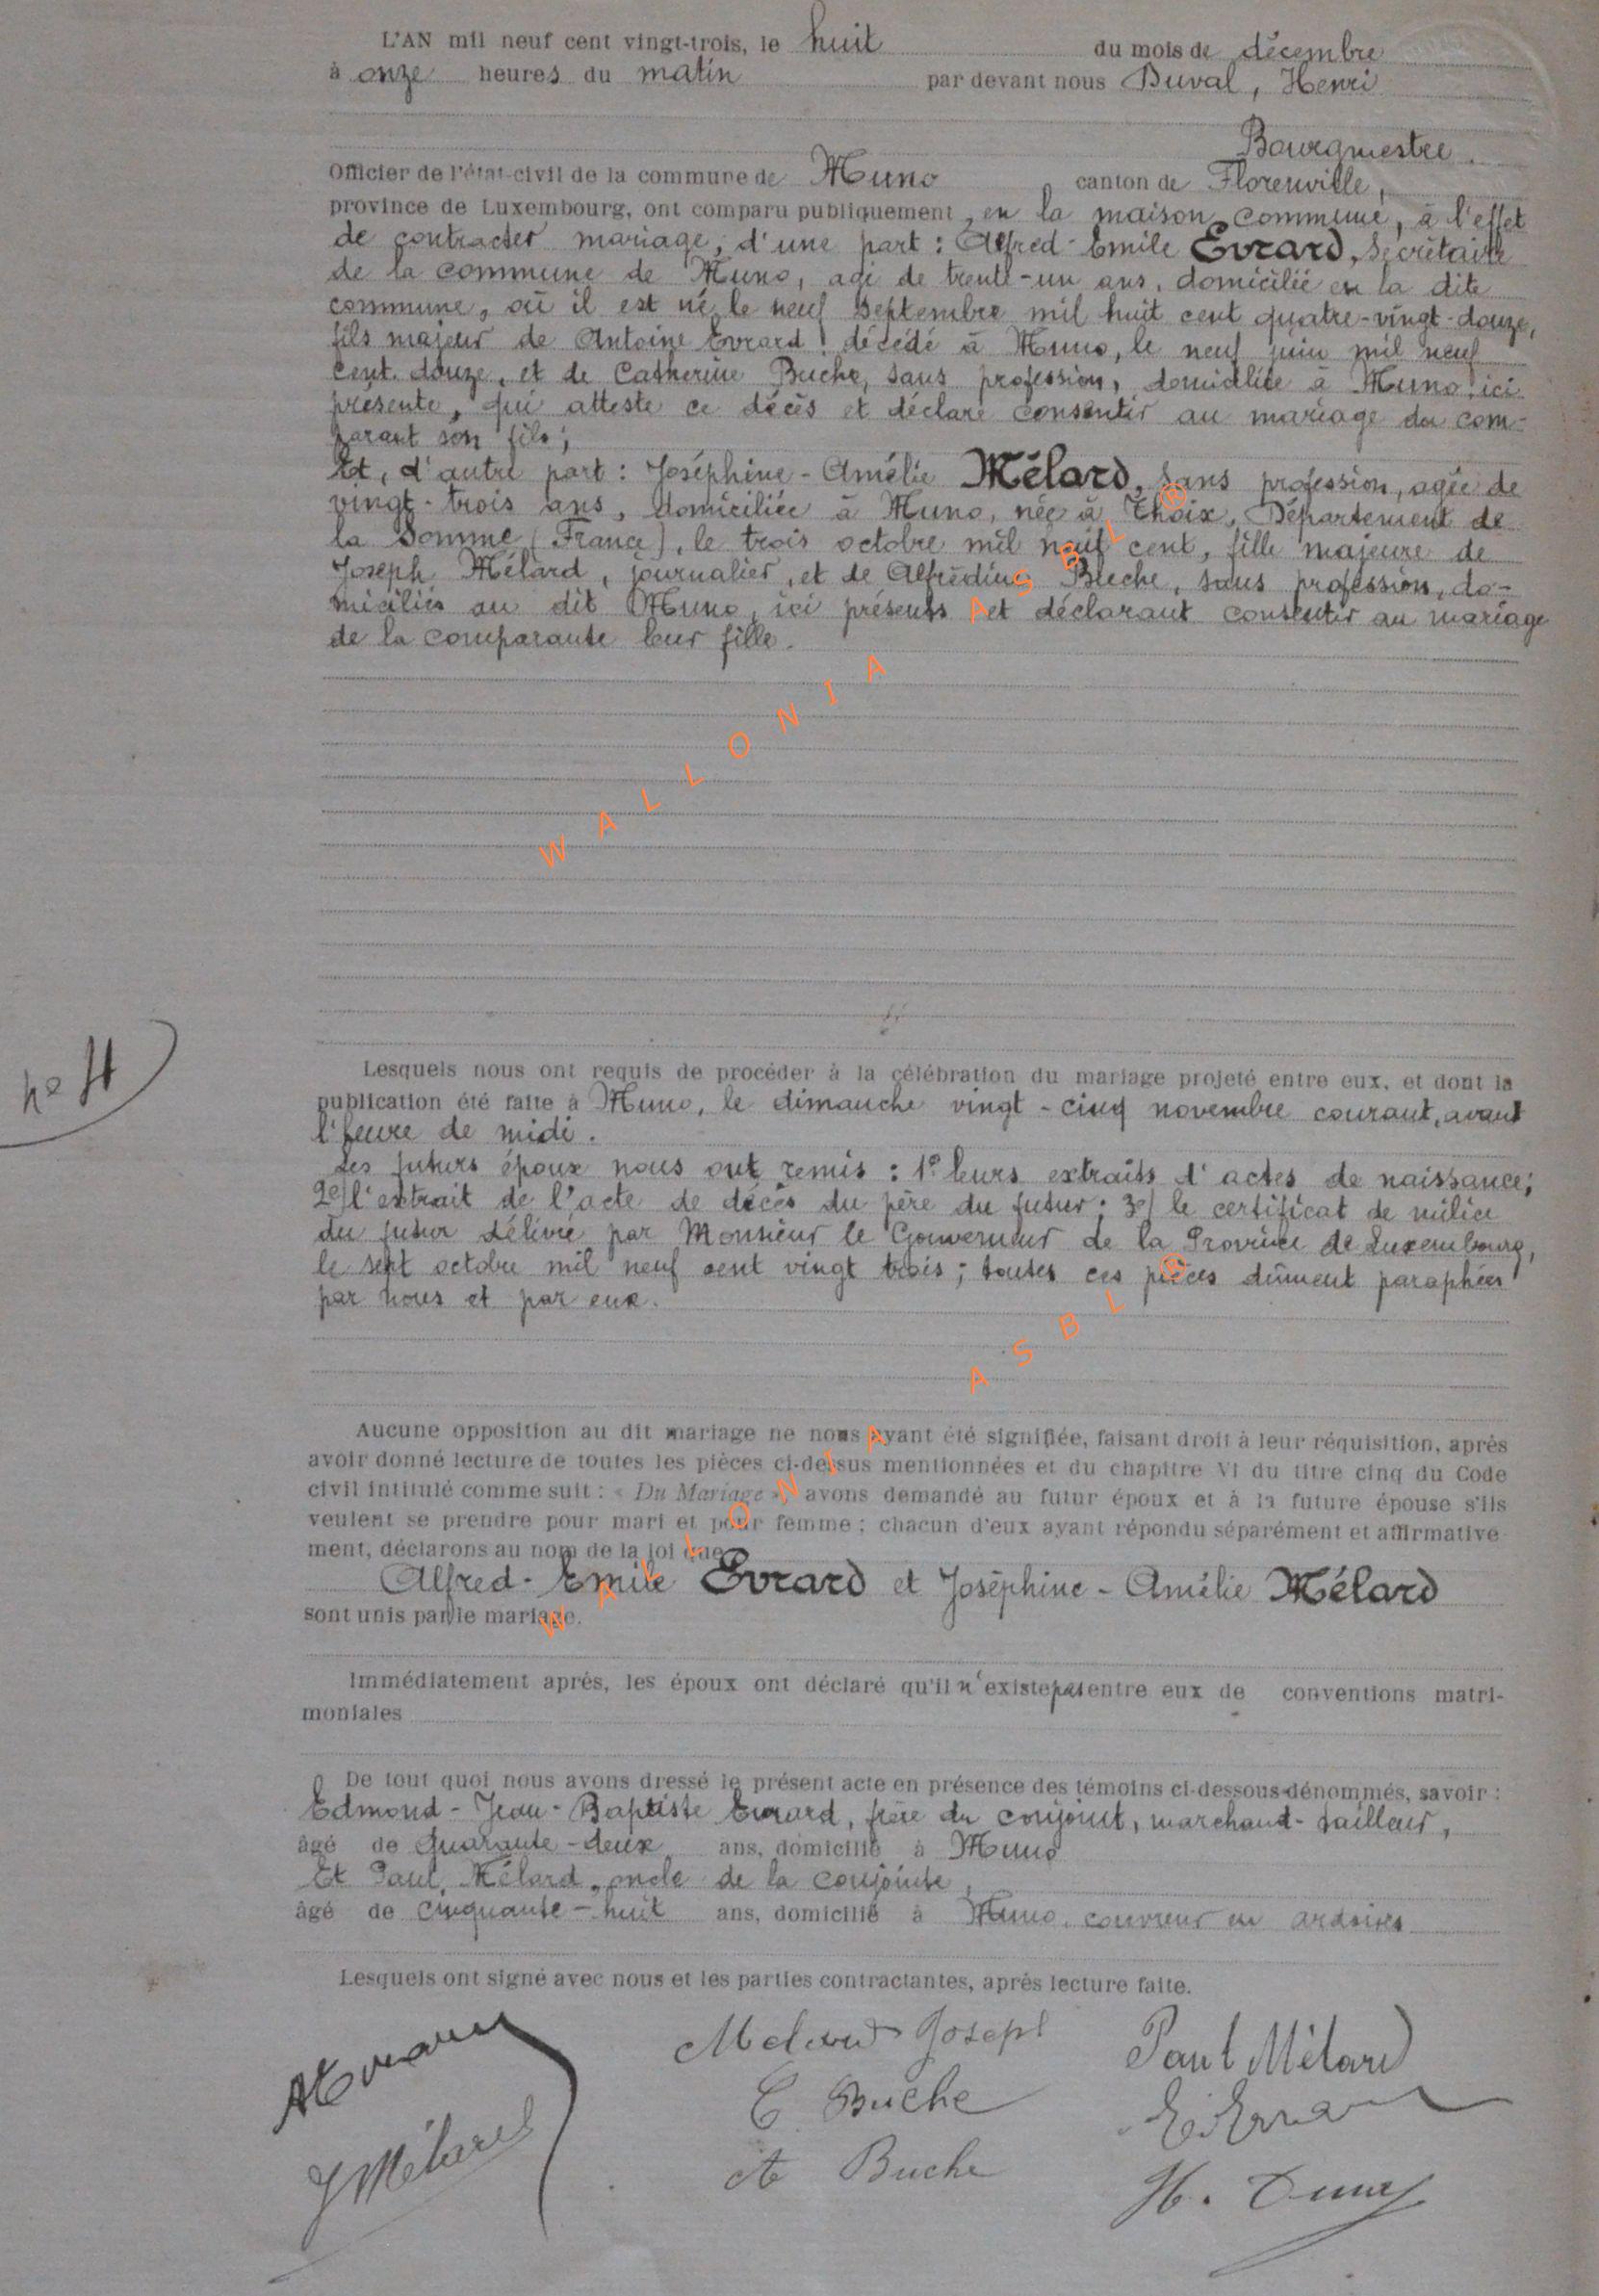 L'AN mil neuf cent vingt-trois, le huit du mois de décembre
à onze heures du matin par devant nous Duval, Henri
Bourgmestre.
Officier de l'état-civil de la commune de Muno canton de Florenville,
province de Luxembourg, ont comparu publiquement, en la maison commune, à l'effet
de contracter mariage, d'une part : Alfred-Emile Evrard, secrétaire
de la commune de Muno, agé de trente-un ans, domicilié en la dite
commune, où il est né le neuf Septembre mil huit cent quatre-vingt-douze,
fils majeur de Antoine Evrard, décédé à Muno, le neuf juin mil neuf
cent douze, et de Catherine Buche, sans profession, domiciliée à Muno, ici
présente, qui atteste ce décès et déclare consentir au mariage du com-
parant son fils;
Et, d'autre part : Joséphine-Amélie Mélard, sans profession, agée de
vingt-trois ans, domiciliée à Muno, née à Thoix, Département de
la Somme (France), le trois octobre mil neuf cent, fille majeure de
Joseph Mélard, journalier, et de Alfrédine Buche, sans profession, do-
miciliés au dit Muno, ici présents et déclarant consentir au mariage
de la comparante leur fille.
WALLONIA ASBL ®
Lesquels nous ont requis de procéder à la célébration du mariage projeté entre eux, et dont la
publication été faite à Muno, le dimanche vingt-cinq novembre courant, avant
l'heure de midi.
nº 11
Les futurs époux nous ont remis : 1º leurs extraits d'actes de naissance;
2º/ l'extrait de l'acte de décès du père du futur; 3º/ le certificat de milice
du futur délivré par Monsieur le Gouverneur de la Province de Luxembourg,
le sept octobre mil neuf cent vingt trois; toutes ces pièces dûment paraphées
par nous et par eux.
Aucune opposition au dit mariage ne nous ayant été signifiée, faisant droit à leur réquisition, après
avoir donné lecture de toutes les pièces ci-dessus mentionnées et du chapitre VI du titre cinq du Code
civil intitulé comme suit : « Du Mariage », avons demandé au futur époux et à la future épouse s'ils
veulent se prendre pour mari et pour femme ; chacun d'eux ayant répondu séparément et affirmative
ment, déclarons au nom de la loi que
Alfred-Emile Evrard et Joséphine-Amélie Mélard
sont unis par le mariage.
WALLONIA ASBL ®
Immédiatement aprés, les époux ont déclaré qu'il n'existe pas entre eux de conventions matri-
moniales
De tout quoi nous avons dressé le présent acte en présence des témoins ci-dessous dénommés, savoir :
Edmond-Jean-Baptiste Evrard, frère du conjoint, marchand-tailleur,
âgé de quarante-deux ans, domicilié à Muno
Et Paul Mélard, oncle de la conjointe,
âgé de cinquante-huit ans, domicilié à Muno, couvreur en ardoises
Lesquels ont signé avec nous et les parties contractantes, après lecture faite.
AEvrard Melard Joseph Paul Mélard
C Buche E. Evrard
J Mélard A Buche H. Duval